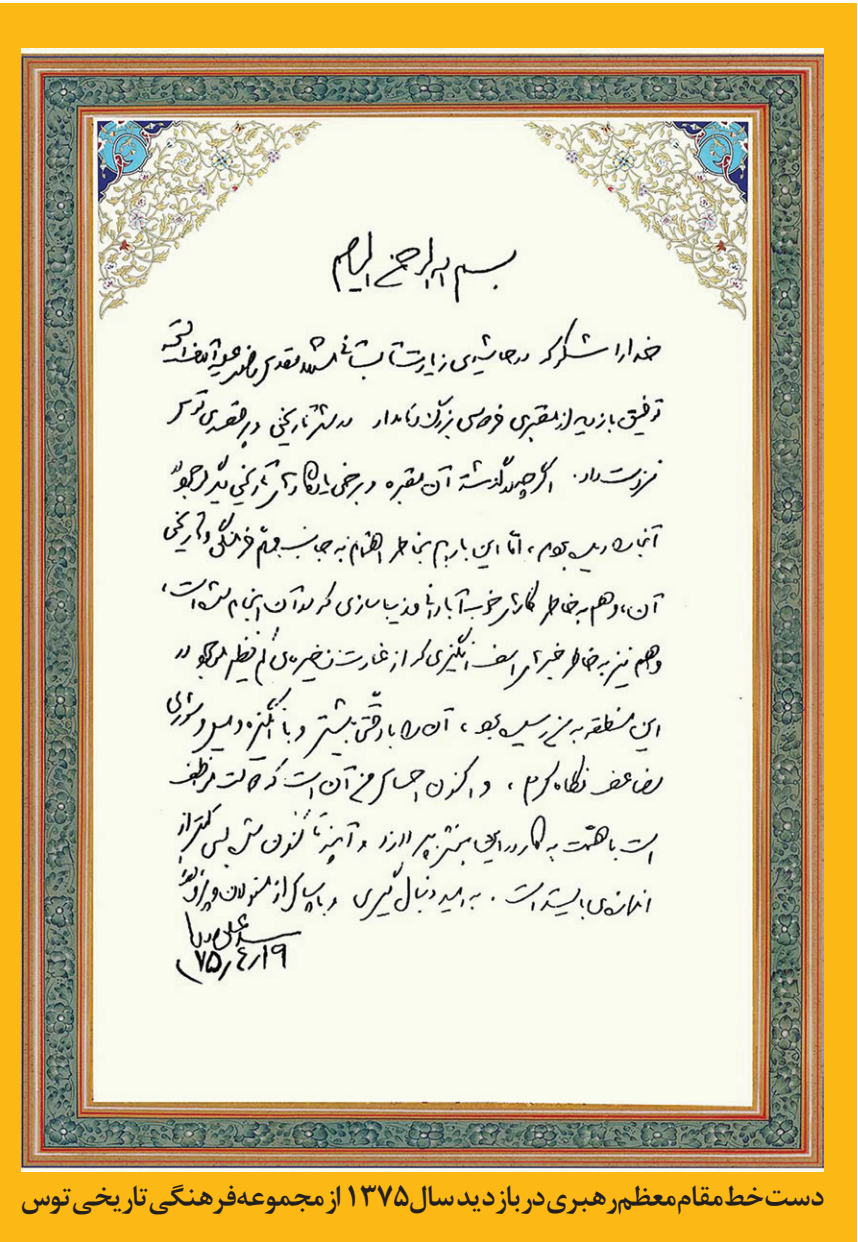 بسم الله الرحمن الرحیم
خدا را شکر که در حاشیه‌ی زیارت آستان مشهد مقدس
توفیق بازدید از مقبره‌ی فردوسی بزرگ و نامدار در شهر تاریخی توس
دست داد. اگر چه در گذشته آن مقبره و برخی یادگارهای تاریخی دیگر موجود در
آنجا را دیده بودم، امّا این بار هم بخاطر اهتمام به جانب مهمّ فرهنگی و تاریخی
آن، و هم به خاطر کارهای خوب آبادانی و زیباسازی که در آن انجام شده است،
و هم نیز به خاطر خبرهای اسف انگیزی که از غارت ذخیره‌ی کم نظیر موجود در
این منطقه به من رسیده بود، آن را با دقّتی بیشتر و با انگیزه و میل و شوری
مضاعف نگاه کردم، و اکنون احساس من آن است که دولت موظف
است با همّت به کار در این بپردازد و آنچه تا کنون شده بسی کمتر از
اندازه‌ی بایسته است. به امید دنبال گیری و با سپاس از مسئولان
سید علی خامنه‌ای
۷۵/۴/۱۹
دست خط مقام معظم رهبری در بازدید سال ۱۳۷۵ از مجموعه فرهنگی تاریخی توس